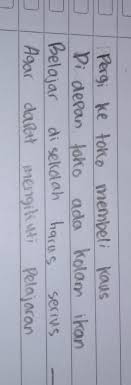 Pergi ke toko membeli kaus
Di depan toko ada kolam ikan
Belajar di sekolah harus serius
Agar dapat mengikuti Pelajaran